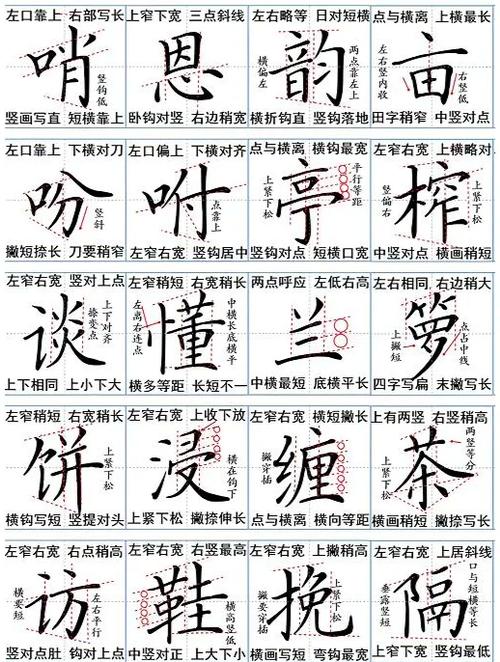 左口靠上 右部写长
哨
竖钩低
竖画写直 短横靠上
上窄下宽 三点斜线
恩
卧钩对竖 右边稍宽
左右略等 日对短横
韵
横偏左
两点靠左上
横折钩直 竖钩落地
点与横离 上横最长
亩
左右竖内收
右竖低
田字稍窄 中竖对点
左口靠上 下横对刀
吩
竖斜
撇短捺长 刀要稍窄
左口偏上 下横对齐
咐
点靠上
左窄右宽 竖钩居中
点与横离 横钩最宽
亭
上紧下松
平行等距
竖钩对点 短横口宽
左窄右宽 上横略对
榨
竖偏右
上紧下松
中竖对点 横画稍短
左窄右宽 竖对上点
谈
捺变点
上下对齐
上下相同 上小下大
左窄稍短 右宽稍长
懂
左离右连点
中横长底横平
横多等距 长短不一
两点呼应 左低右高
兰
中横最短 底横平长
左右相同 右边稍大
箩
上撇短
点占中线
四字写扁 末撇写长
左窄稍短 右宽稍长
饼
上紧下松
横钩写短 竖提对头
左窄右宽 上收下放
浸
横在钩下
上紧下松 撇捺伸长
左窄右宽 横短撇长
缠
撇穿插
点与横离 横向等距
上有两竖 右竖稍高
茶
两竖等分
上紧下松
横画稍短 撇捺写长
左窄右宽 右点稍高
访
横要短
左右平行
竖对点肚 钩对点头
左窄右宽 右竖最高
鞋
横高竖低
中竖对正 上大下小
左窄右宽 上撇稍高
挽
撇要穿插
上紧下松
横短钩长 弯钩最宽
左窄右宽 上居斜线
隔
垂露竖短
口与短横等长
上窄下宽 竖钩最低